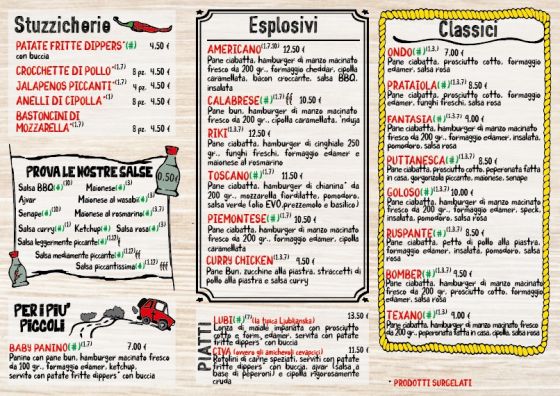 Stuzzicherie
PATATE FRITTE DIPPERS*(#) 4.50 €
con buccia
CROCCHETTE DI POLLO*(1,7) 8 pz. 4.50 €
JALAPENOS PICCANTI*(1,7) 4 pz. 4.50 €
ANELLI DI CIPOLLA*(1) 8 pz. 4.50 €
BASTONCINI DI
MOZZARELLA*(1,3,7) 4 pz. 4.50 €
PROVA LE NOSTRE SALSE
0,50€
Salsa BBQ(#)(10) Maionese(#)(3)
Ajvar Maionese al wasabi(#)(3)
Senape(#)(10) Maionese al rosmarino(#)(3,7)
Salsa curry(#)(1) Ketchup(#) Salsa rosa(#)(3)
Salsa leggermente piccante(#)(12)
Salsa mediamente piccante(#)(12)
Salsa piccantissima(#)(12)
PER I PIU'
PICCOLI
BABY PANINO(#)(1,7) 7.00 €
Panino con pane bun, hamburger manzo fresco
da 100 gr., formaggio edamer, ketchup,
servito con patate fritte dippers* con buccia
Esplosivi
AMERICANO(1,7,10) 12.50 €
Pane ciabatta, hamburger di manzo macinato
fresco da 200 gr., formaggio cheddar, cipolla
caramellata, bacon croccante, salsa BBQ,
insalata
CALABRESE(#)(1,7) 10.50 €
Pane bun, hamburger di manzo macinato fresco
da 200 gr., cipolla caramellata, 'nduja
RIKI(1,3,7) 12.50 €
Pane ciabatta, hamburger di cinghiale 250
gr., funghi freschi, formaggio edamer e
maionese al rosmarino
TOSCANO(#)(1,7) 11.50 €
Pane ciabatta, hamburger di chianina* da
200 gr., mozzarella fiordilatte, pomodoro,
salsa verde (olio EVO,prezzemolo e basilico)
PIEMONTESE(#)(1,7) 10.50 €
Pane ciabatta, hamburger di manzo macinato
fresco da 200 gr., formaggio edamer, cipolla
caramellata
CURRY CHICKEN(1,3,7) 9.50 €
Pane Bun, zucchine alla piastra, straccetti di
pollo alla piastra e salsa curry
PIATTI
LUBI(#)(1,3,7) (la tipica Ljubljanska) 13.50 €
Lonza di maiale impanata con prosciutto
cotto e form. edamer, servita con patate
fritte dippers* con buccia
CIVA (ovvero gli amichevoli cevapcici) 11.50 €
Rotolini di carne speziati, serviti con patate
fritte dippers* con buccia, ajvar (salsa a
base di peperoni) e cipolla rigorosamente
cruda
Classici
ONDO(#)(1,3,7) 7.00 €
Pane ciabatta, prosciutto cotto, formaggio
edamer, salsa rosa
PRATAIOLA(#)(1,3,7) 8.50 €
Pane ciabatta, prosciutto cotto, formaggio
edamer, funghi freschi, salsa rosa
FANTASIA(#)(1,3,7) 9.00 €
Pane ciabatta, hamburger di manzo macinato
fresco da 200 gr., formaggio edamer, insalata,
pomodoro, salsa rosa
PUTTANESCA(#)(1,3,7) 8.50 €
Pane ciabatta, prosciutto cotto, peperonata fatta
in casa, gorgonzola piccante, maionese, senape
GOLOSO(#)(1,3,7) 10.00 €
Pane ciabatta, hamburger di manzo macinato
fresco da 200 gr., formaggio edamer, speck,
insalata, pomodoro, salsa rosa
RUSPANTE(#)(1,3,7) 8.50 €
Pane ciabatta, petto di pollo alla piastra,
formaggio edamer, insalata, pomodoro, salsa
rosa
BOMBER(#)(1,3,7) 9.50 €
Pane ciabatta, hamburger di manzo macinato
fresco da 200 gr., prosciutto cotto, formaggio
edamer, salsa rosa
TEXANO(#)(1,3,7) 9.50 €
Pane ciabatta, hamburger di manzo macinato fresco
da 200 gr., peperonata fatta in casa, cipolla, salsa rosa
* PRODOTTI SURGELATI